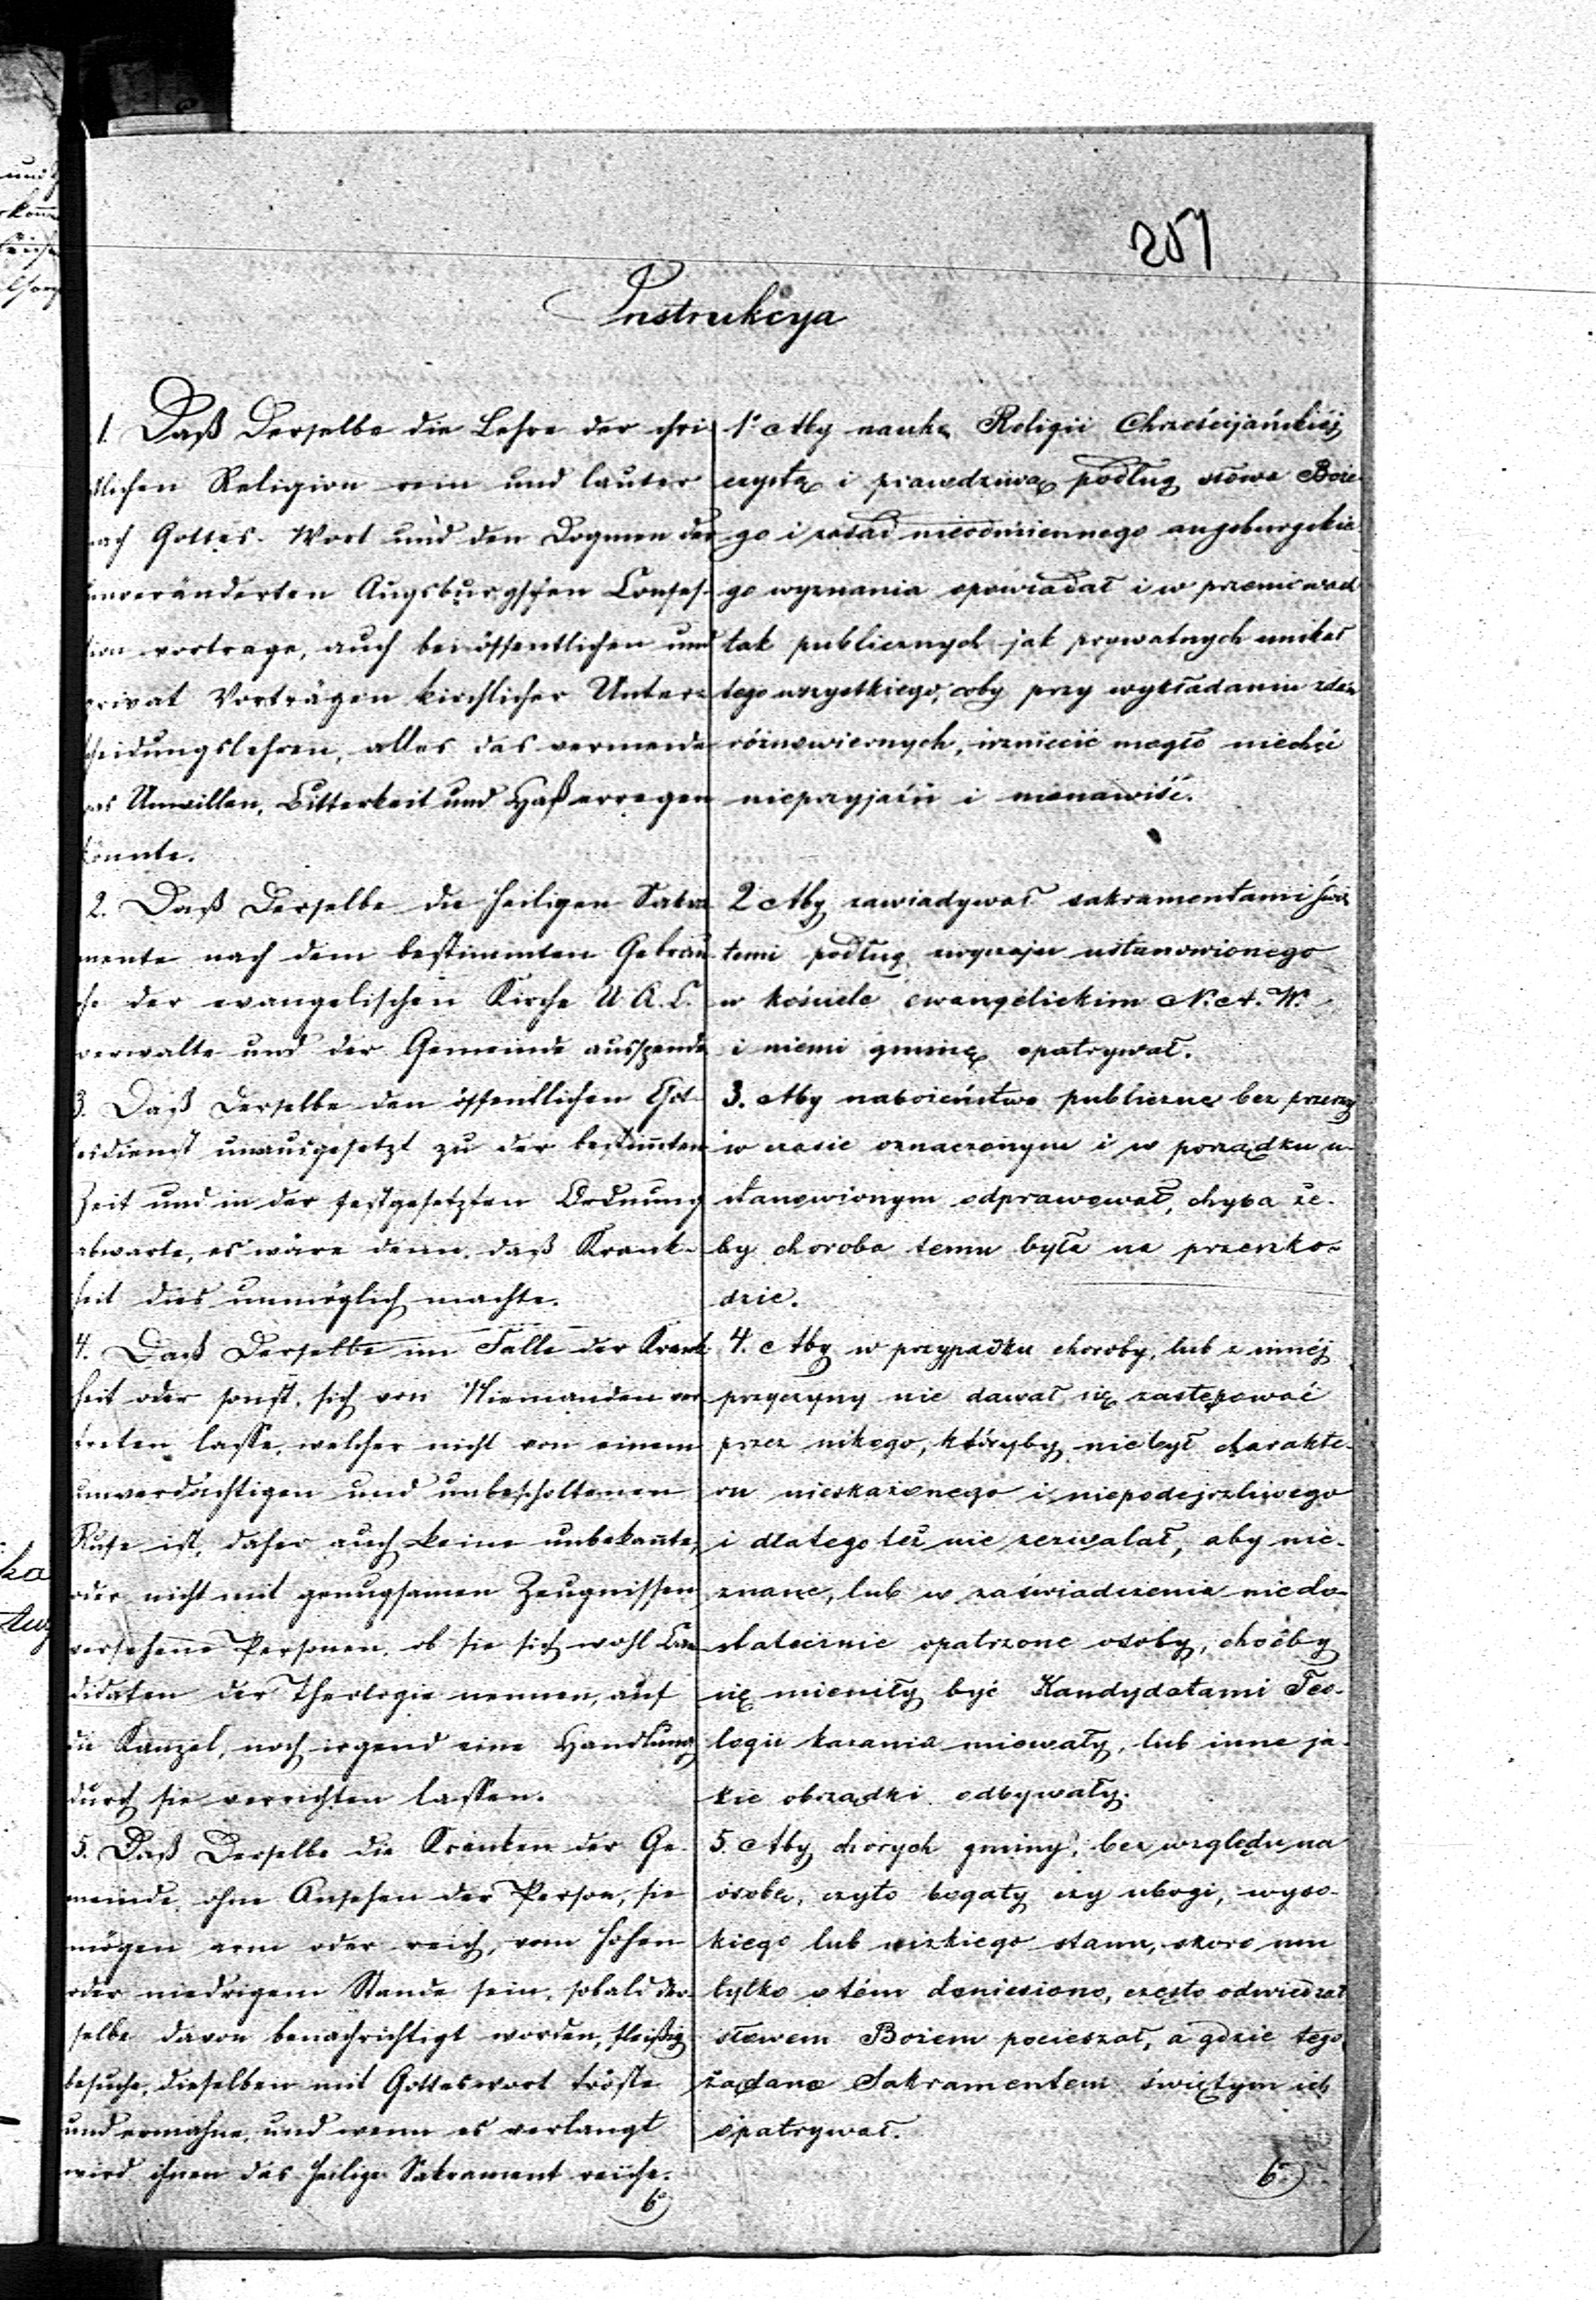 207
Instrukcya
1. Daß Derselbe die Lehre der chri
stlichen Religion rein und lauter
nach Gottes-Wort und den Dogmen der
unveränderten Augsburgschen Confes-
sion vortrage, auch bei öffentlichen und
privat Vorträgen kirchlicher Unter-
scheidungslehren, alles das vermeide
was Unwillen, Bitterkeit und Haß erregen
könnte.
2. Daß Derselbe die heiligen Sakra
mente nach dem bestimmten Gebräu
che der evangelischen Kirche U. A. C.
verwalte und der Gemeinde ausspende
3. Daß Derselbe den öffentlichen Got-
tesdienst unausgesetzt zu der bestim̄ten
Zeit und in der festgesetzten Ordnung
abwarte, es wäre denn, daß Krank-
heit dies unmöglich machte.
4. Daß Derselbe im Falle der Krank
heit oder sonst, sich von Niemanden ver
treten lasse, welcher nicht von einem
unverdächtigen und unbescholtenen
Rufe ist, daher auch keine unbekan̄te,
oder nicht mit genugsamen Zeugnissen
versehene Personen, ob sie sich wohl Can
didaten der Theologie nennen, auf
die Kanzel, noch irgend eine Handlung
durch sie verrichten lassen.
5. Daß Derselbe die Kranken der Ge-
meinde, ohne Ansehen der Person, sie
mögen arm oder reich, vom hohen
oder niedrigem Stande sein, sobald der-
selbe davon benachrichtigt worden, fleißig
besuche, dieselben mit Gotteswort tröste
und ermahne, und wenn es verlangt
wird ihnen das heilige Sakrament reiche.
6)
1. Aby naukę Religii Chrześcijańskiéj
czystą i prawdziwą podług słowa Boże
go i zasad nieodmiennego augsburgskie
go wyznania opowiadał i w przemowach
tak publicznych jak prywatnych unikał
tego wszystkiego, coby przy wykładaniu zdań
różnowiernych, wzniecić mogło niechęć
nieprzyjaźń i nienawiść.
2 Aby zawiadywał sakramentami świę
temi podług zwyczaju ustanowionego
w kościele ewangelickim N. A. W.
i niemi gminę opatrywał.
3. Aby nabożeństwo publiczne bez przerwy
w czasie oznaczonym i w porządku u-
stanowionym odprawował, chyba że-
by choroba temu była na przeszko-
dzie.
4. Aby w przypadku choroby, lub z innéj
przyczyny nie dawał się zastępować
przez nikogo, któryby nie był charakte-
ru nieskażonego i niepodejrzliwego
i dlatego też nie zezwalał, aby nie-
znane, lub w zaświadczenia niedo-
statecznie opatrzone osoby, choćby
się mieniły być Kandydatami Teo-
logii kazania miewały, lub inne ja-
kie obrządki odbywały.
5. Aby chorych gminy, bez względu na
osobę, czyto bogaty czy ubogi, wyso-
kiego lub nizkiego stanu, skoro mu
tylko o tém doniesiono, często odwiedzał
słowem Bożem pocieszał, a gdzie tego
żądano Sakramentem świętym ich
opatrywał.
6)